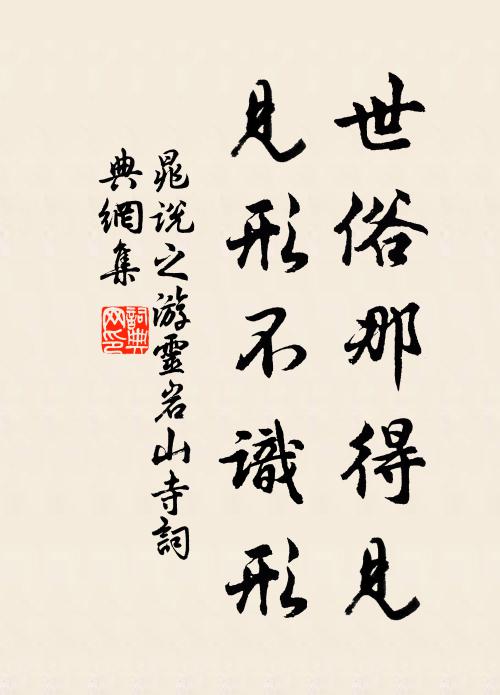 世俗那得見
見形不識形
晁說之游靈岩山寺詞
典網集
詞典网印